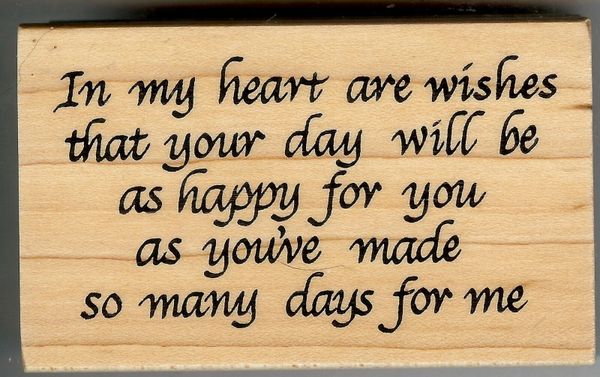 In my heart are wishes
that your day will be
as happy for you
as you've made
so many days for me